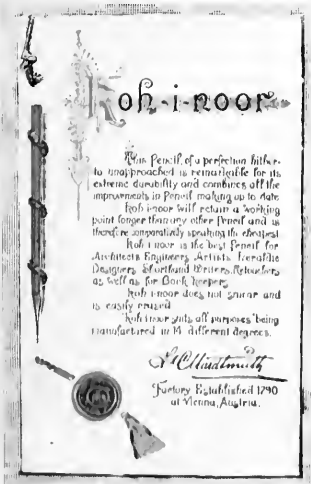 Koh-i-noor
This Pencil, of a perfection hither-
to unapproached is remarkable for its
extreme durability and combines all the
improvements in Pencil making up to date
Koh-i-noor will retain a working
point longer than any other Pencil and is
therefore comparatively speaking the cheapest.
Koh-i-noor is the best Pencil for
Architects Engineers Artists Heraldic
Designers, Shorthand Writers, Retouchers
as well as for Book-keepers
Koh-i-noor does not smear and
is easily erased
Koh-i-noor suits all purposes being
manufactured in 14 different degrees.
L&C Hardtmuth
Factory Established 1790
at Vienna, Austria.